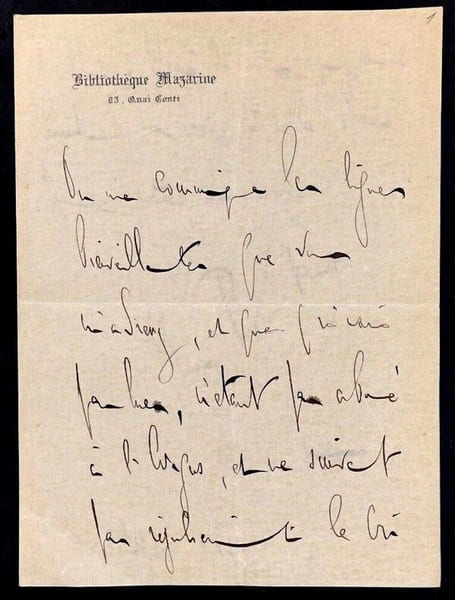 1
Bibliothèque Mazarine
23, Quai Conti
On me communique les lignes
bienveillantes que vous
m'adressez, et que je n'avais
pas lues, n'étant pas abonné
à l'Argus, et ne suivant
pas régulièrement le Cri